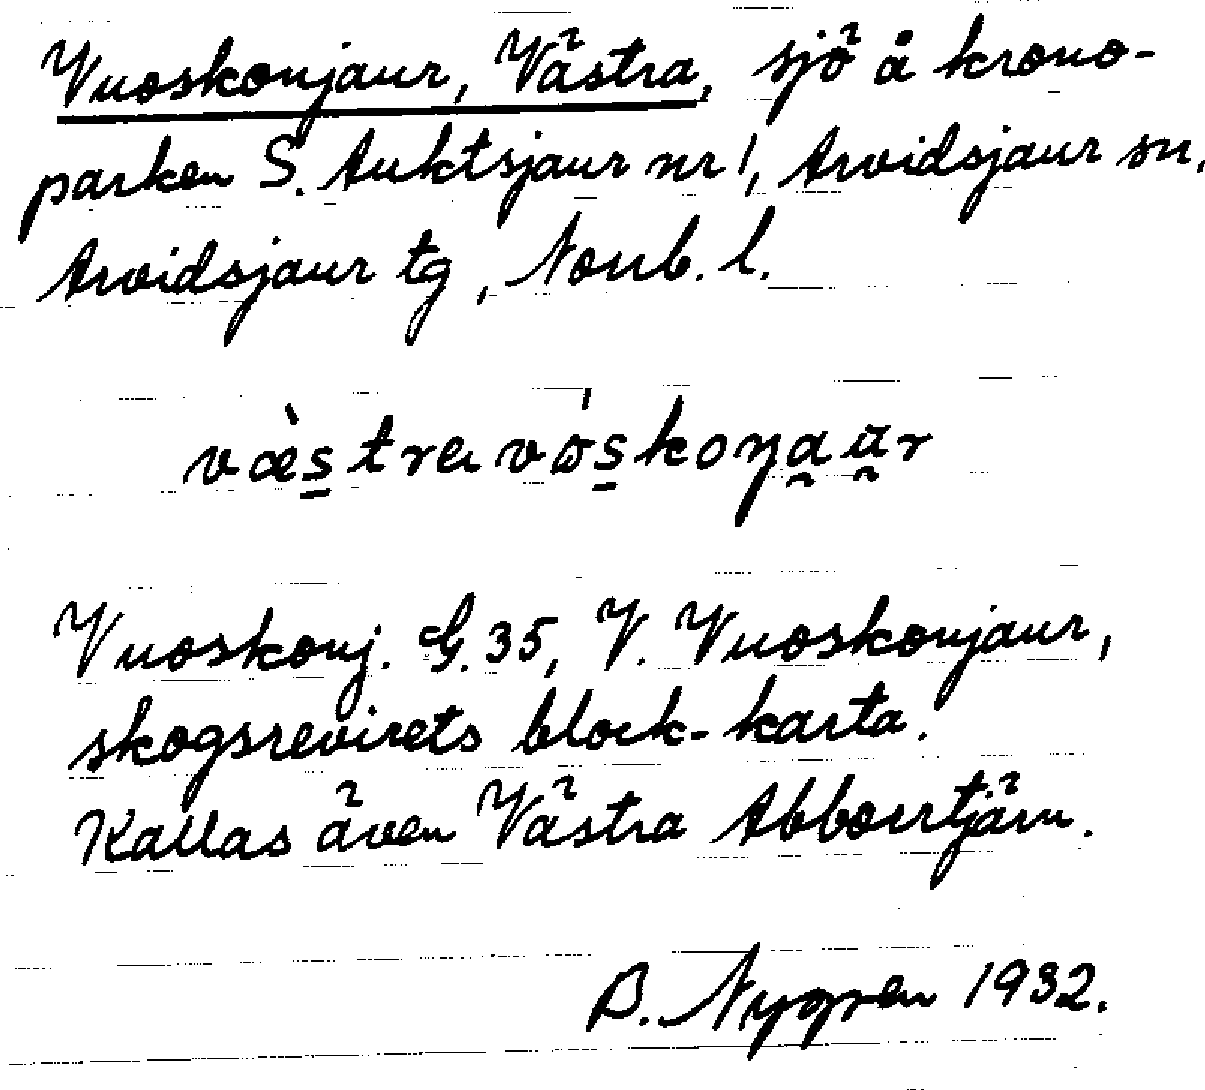 Vuoskonjaur, Västra, sjö å krono-
parken S. Auktsjaur nr 1, Arvidsjaur sn,
Arvidsjaur tg, Norrb. l.
væ̀s̱tra vó̱s̱koŋa̰ṵr
Vuoskonj. G. 35, V. Vuoskonjaur,
skogsrevirets block-karta.
Kallas även Västra Abborrtjärn.
B. Nygren 1932.